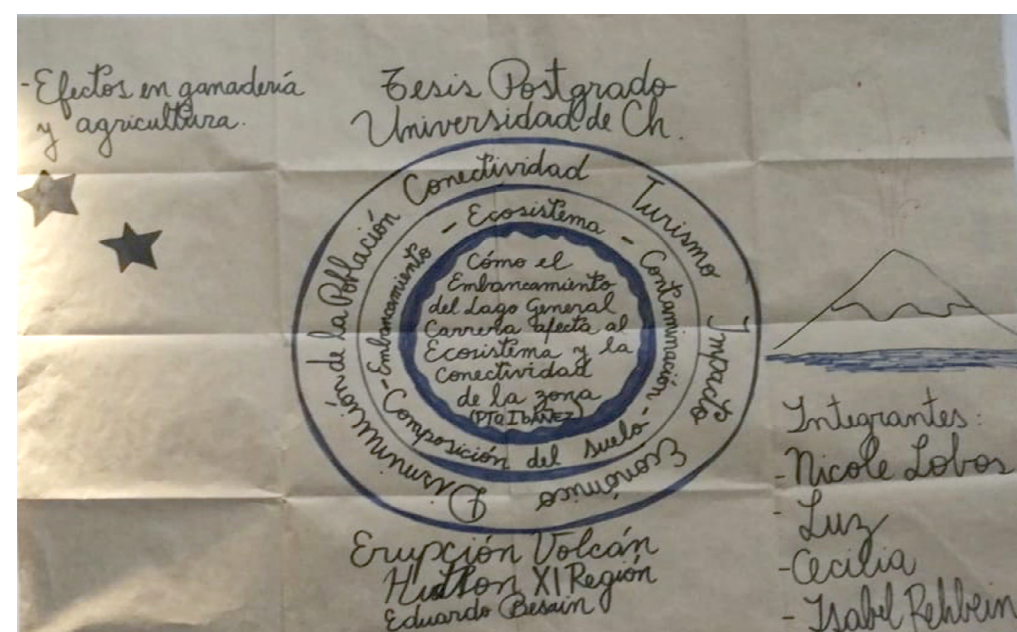 -Efectos en ganadería
y agricultura.
Tesis Postgrado
Universidad de Ch.
Disminución de la Población Conectividad Turismo Impacto Económico
-Embancamiento - Ecosistema - Contaminación -
Composición del suelo
Cómo el
Embancamiento
del Lago General
Carrera afecta al
Ecosistema y la
Conectividad
de la zona
(PTO IBAÑEZ)
Integrantes:
- Nicole Lobos
- Luz
- Cecilia
- Isabel Rehbein
Erupción Volcán
Hudson XI Región
Eduardo Besain